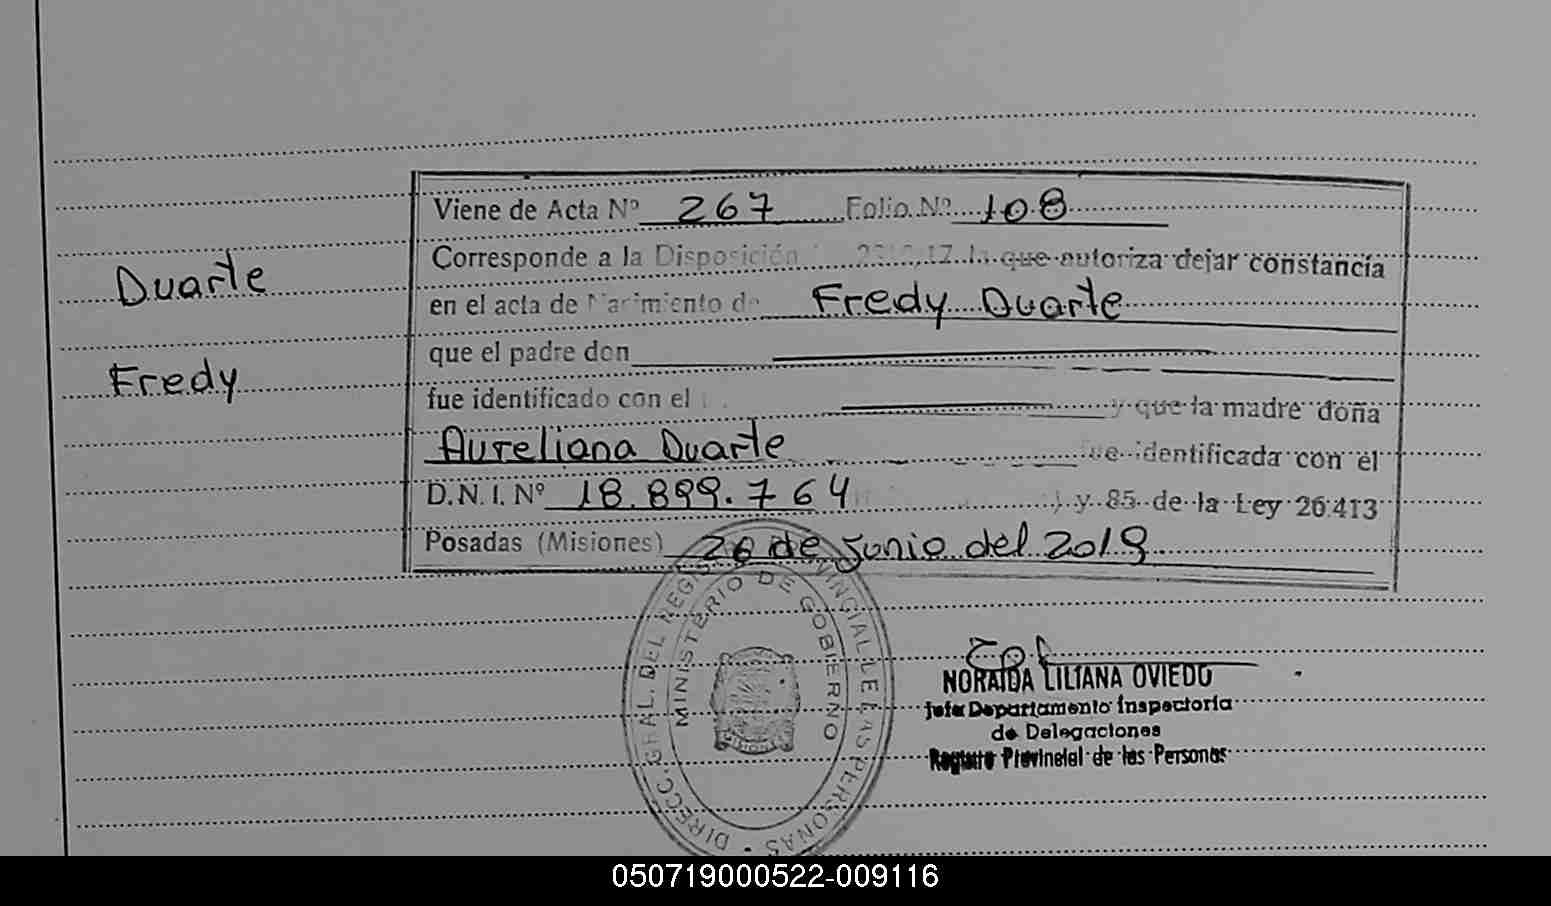 Viene de Acta Nº 267 Folio Nº 108
Corresponde a la Disposición la que autoriza dejar constancia
Duarte
en el acta de Nacimiento de Fredy Duarte
que el padre don
Fredy
fue identificado con el y que la madre doña
Aureliana Duarte fue identificada con el
D.N.I. Nº 18.899.764 ) y 85 de la Ley 26.413
Posadas (Misiones) 26 de Junio del 2019
DIRECC. GRAL. DEL REG PROVINCIAL DE LAS PERSONAS
MINISTERIO DE GOBIERNO
MISIONES
NORAIDA LILIANA OVIEDO
Jefe Departamento Inspectoria
de Delegaciones
Registro Provincial de las Personas
050719000522-009116